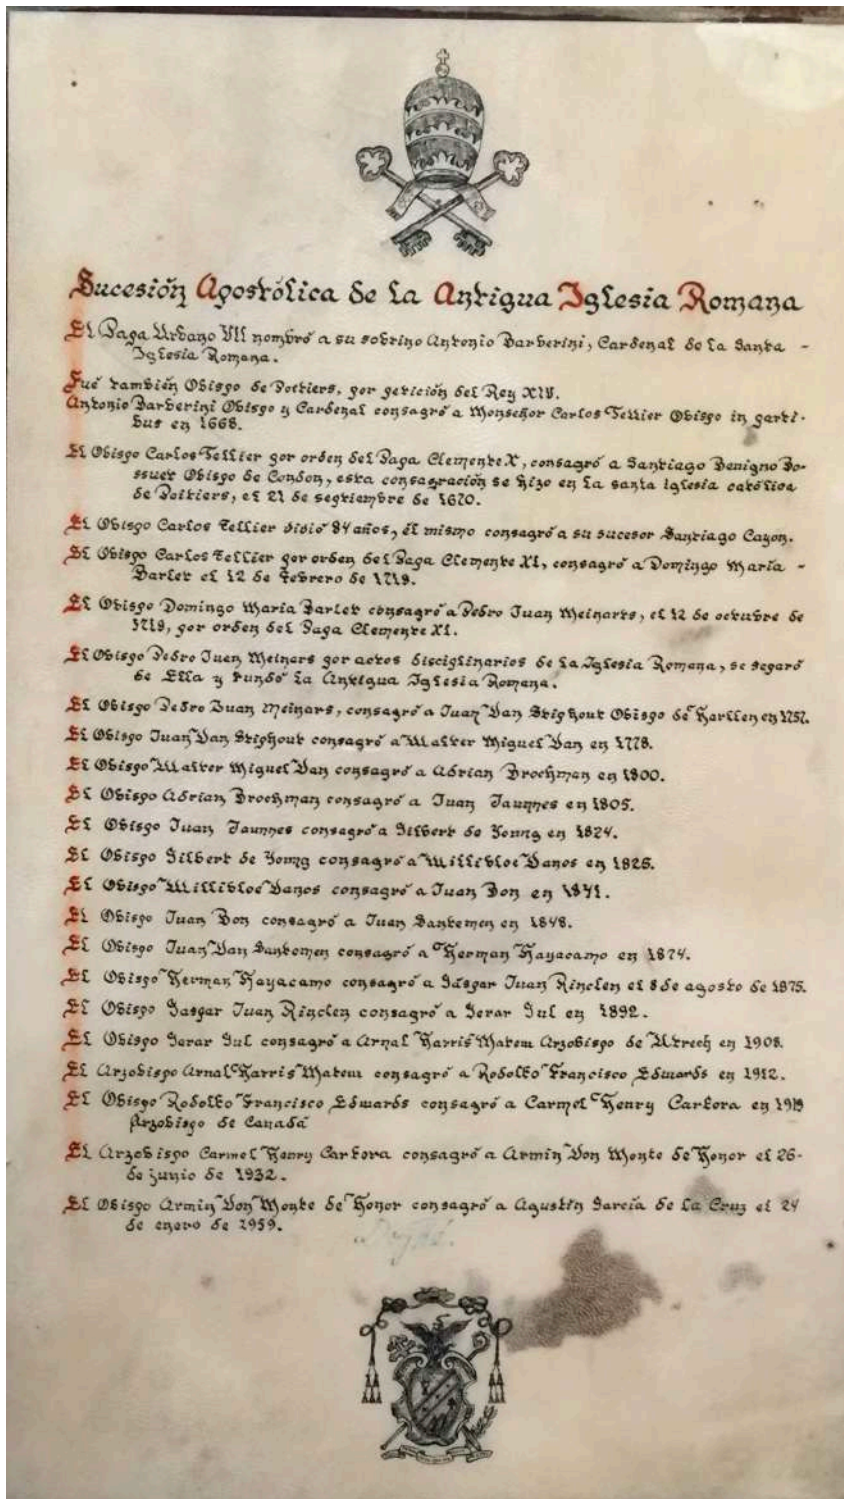 Sucesión Apostólica de la Antigua Iglesia Romana
El Papa Urbano VII nombró a su sobrino Antonio Barberini, Cardenal de la Santa -
Iglesia Romana.
Fué también Obispo de Poitiers, por petición del Rey XIV.
Antonio Barberini Obispo y Cardenal consagró a Monseñor Carlos Tellier Obispo in parti-
bus en 1668.
El Obispo Carlos Tellier por orden del Papa Clemente X, consagró a Santiago Benigno Bo-
ssuet Obispo de Condon, esta consagración se hizo en la santa iglesia católica
de Poitiers, el 21 de septiembre de 1670.
El Obispo Carlos Tellier vivió 84 años, él mismo consagró a su sucesor Santiago Cayon.
El Obispo Carlos Tellier por orden del Papa Clemente XI, consagró a Domingo María -
Barlet el 12 de febrero de 1719.
El Obispo Domingo María Barlet consagró a Pedro Juan Meinarts, el 12 de octubre de
1719, por orden del Papa Clemente XI.
El Obispo Pedro Juan Meinars por actos disciplinarios de la Iglesia Romana, se separó
de Ella y fundó la Antigua Iglesia Romana.
El Obispo Pedro Juan Meinars, consagró a Juan Van Stiphout Obispo de Harllen en 1757.
El Obispo Juan Van Stiphout consagró a Walter Miguel Van en 1778.
El Obispo Walter Miguel Van consagró a Adrian Brochman en 1800.
El Obispo Adrian Brochman consagró a Juan Jaunnes en 1805.
El Obispo Juan Jaunnes consagró a Gilbert de Yonng en 1824.
El Obispo Gilbert de Yonng consagró a Willibloe Vanos en 1826.
El Obispo Willibloe Vanos consagró a Juan Bon en 1841.
El Obispo Juan Bon consagró a Juan Santemen en 1848.
El Obispo Juan Van Santemen consagró a Herman Hayacamo en 1874.
El Obispo Herman Hayacamo consagró a Gáspar Juan Rinclen el 8 de agosto de 1875.
El Obispo Gaspar Juan Rinclen consagró a Gerar Gul en 1892.
El Obispo Gerar Gul consagró a Arnal Harris Matew Arzobispo de Utrech en 1908.
El Arzobispo Arnal Harris Matew consagró a Rodolfo Francisco Edwards en 1912.
El Obispo Rodolfo Francisco Edwards consagró a Carmel Henry Carfora en 1919
Arzobispo de Canadá
El Arzobispo Carmel Henry Carfora consagró a Armin Von Monte de Honor el 26-
de junio de 1932.
El Obispo Armin Von Monte de Honor consagró a Agustín García de la Cruz el 24
de enero de 1959.